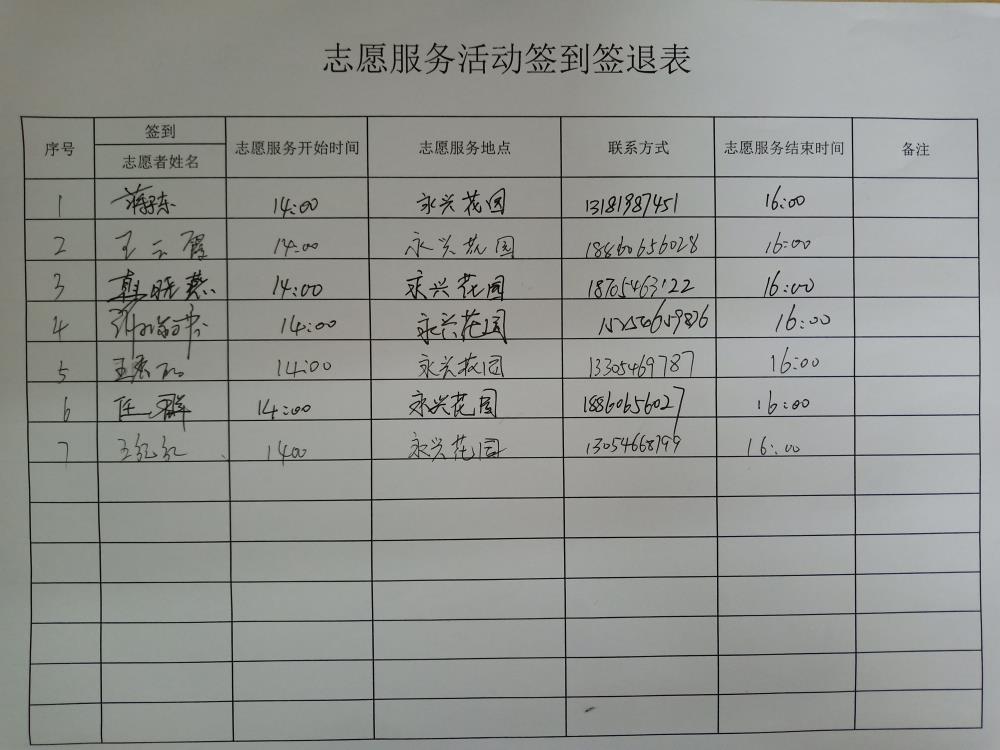 志愿服务活动签到签退表
序号 签到 志愿者姓名 志愿服务开始时间 志愿服务地点 联系方式 志愿服务结束时间 备注
1 14:00 永兴花园 13181987451 16:00
2 王云霞 14:00 永兴花园 18860656028 16:00
3 14:00 永兴花园 18705463122 16:00
4 14:00 永兴花园 16:00
5 14:00 永兴花园 13305469787 16:00
6 任群 14:00 永兴花园 18860656027 16:00
7 王红红 1400 永兴花园 13054668799 16:00